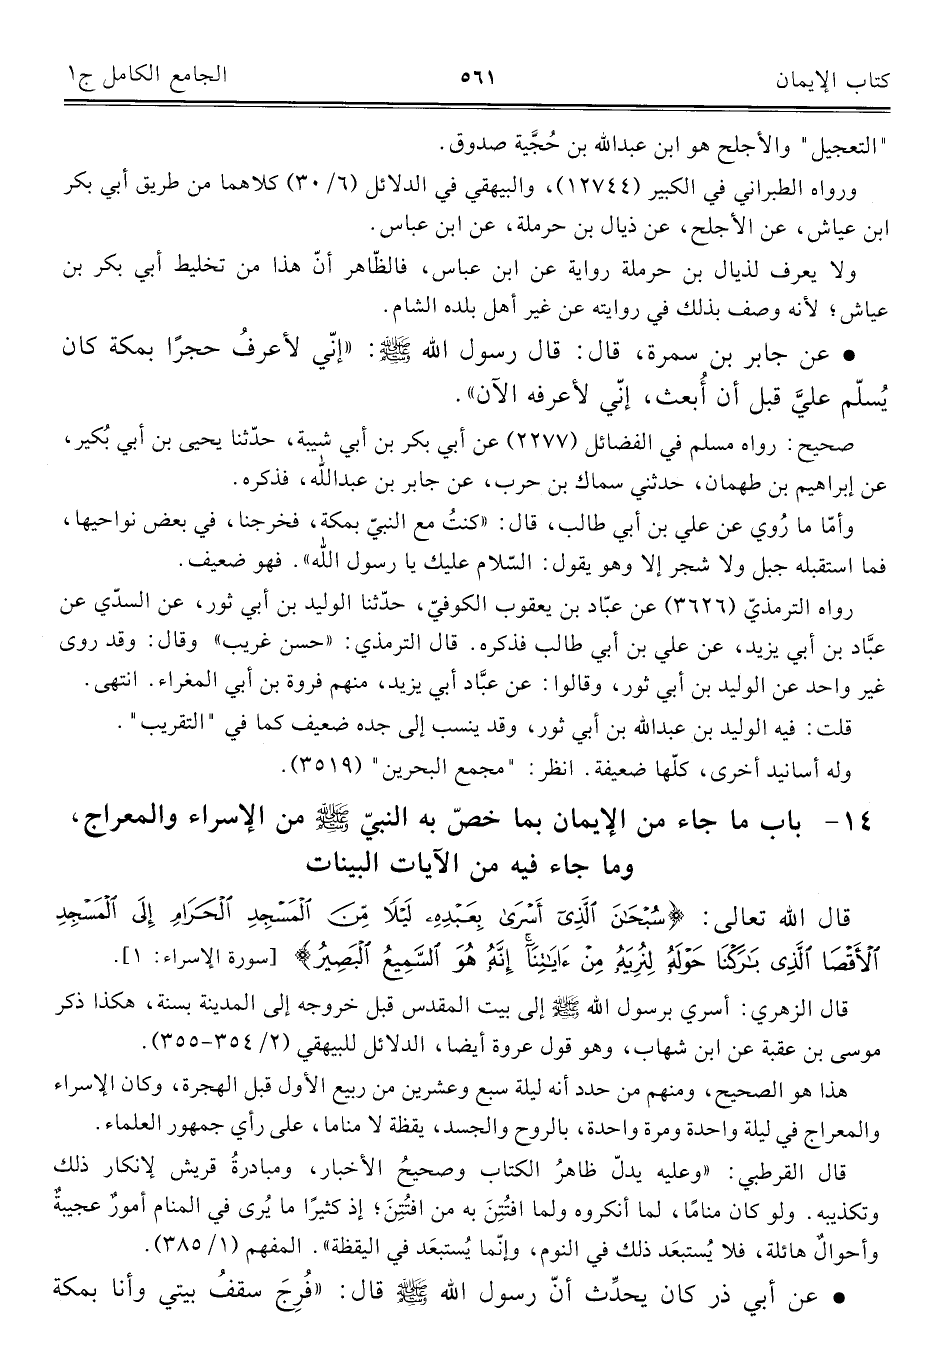 كتاب الإيمان ٥٦١ الجامع الكامل ج١
"التعجيل" والأجلح هو ابن عبدالله بن حُجَّية صدوق.
ورواه الطبراني في الكبير (١٢٧٤٤)، والبيهقي في الدلائل (٦/ ٣٠) كلاهما من طريق أبي بكر
ابن عياش، عن الأجلح، عن ذيال بن حرملة، عن ابن عباس.
ولا يعرف لذيال بن حرملة رواية عن ابن عباس، فالظّاهر أنّ هذا من تخليط أبي بكر بن
عياش؛ لأنه وصف بذلك في روايته عن غير أهل بلده الشام.
• عن جابر بن سمرة، قال: قال رسول الله ﷺ: «إنّي لأعرفُ حجرًا بمكة كان
يُسلّم عليَّ قبل أن أُبعث، إنّي لأعرفه الآن».
صحيح: رواه مسلم في الفضائل (٢٢٧٧) عن أبي بكر بن أبي شيبة، حدّثنا يحيى بن أبي بُكير،
عن إبراهيم بن طهمان، حدثني سماك بن حرب، عن جابر بن عبدالله، فذكره.
وأمّا ما رُوي عن علي بن أبي طالب، قال: «كنتُ مع النبيّ بمكة، فخرجنا، في بعض نواحيها،
فما استقبله جبل ولا شجر إلا وهو يقول: السّلام عليك يا رسول الله». فهو ضعيف.
رواه الترمذيّ (٣٦٢٦) عن عبّاد بن يعقوب الكوفيّ، حدّثنا الوليد بن أبي ثور، عن السدّي عن
عبَّاد بن أبي يزيد، عن علي بن أبي طالب فذكره. قال الترمذي: «حسن غريب» وقال: وقد روى
غير واحد عن الوليد بن أبي ثور، وقالوا: عن عبَّاد أبي يزيد، منهم فروة بن أبي المغراء. انتهى.
قلت: فيه الوليد بن عبدالله بن أبي ثور، وقد ينسب إلى جده ضعيف كما في "التقريب".
وله أسانيد أخرى، كلّها ضعيفة. انظر: "مجمع البحرين" (٣٥١٩).
١٤- باب ما جاء من الإيمان بما خصّ به النبيّ ﷺ من الإسراء والمعراج،
وما جاء فيه من الآيات البينات
قال الله تعالى: ﴿سُبْحَٰنَ ٱلَّذِىٓ أَسْرَىٰ بِعَبْدِهِۦ لَيْلًا مِّنَ ٱلْمَسْجِدِ ٱلْحَرَامِ إِلَى ٱلْمَسْجِدِ
ٱلْأَقْصَا ٱلَّذِى بَٰرَكْنَا حَوْلَهُۥ لِنُرِيَهُۥ مِنْ ءَايَٰتِنَآ إِنَّهُۥ هُوَ ٱلسَّمِيعُ ٱلْبَصِيرُ﴾ [سورة الإسراء: ١].
قال الزهري: أسري برسول الله ﷺ إلى بيت المقدس قبل خروجه إلى المدينة بسنة، هكذا ذكر
موسى بن عقبة عن ابن شهاب، وهو قول عروة أيضا، الدلائل للبيهقي (٢/ ٣٥٤-٣٥٥).
هذا هو الصحيح، ومنهم من حدد أنه ليلة سبع وعشرين من ربيع الأول قبل الهجرة، وكان الإسراء
والمعراج في ليلة واحدة ومرة واحدة، بالروح والجسد، يقظة لا مناما، على رأي جمهور العلماء.
قال القرطبي: «وعليه يدلّ ظاهرُ الكتاب وصحيحُ الأخبار، ومبادرةُ قريش لإنكار ذلك
وتكذيبه. ولو كان منامًا، لما أنكروه ولما افتُتِنَ به من افتُتِنَ؛ إذ كثيرًا ما يُرى في المنام أمورٌ عجيبةٌ
وأحوالٌ هائلة، فلا يُستبعَد ذلك في النوم، وإنّما يُستبعَد في اليقظة». المفهم (١/ ٣٨٥).
• عن أبي ذر كان يحدِّث أنّ رسول الله ﷺ قال: «فُرِجَ سقفُ بيتي وأنا بمكة